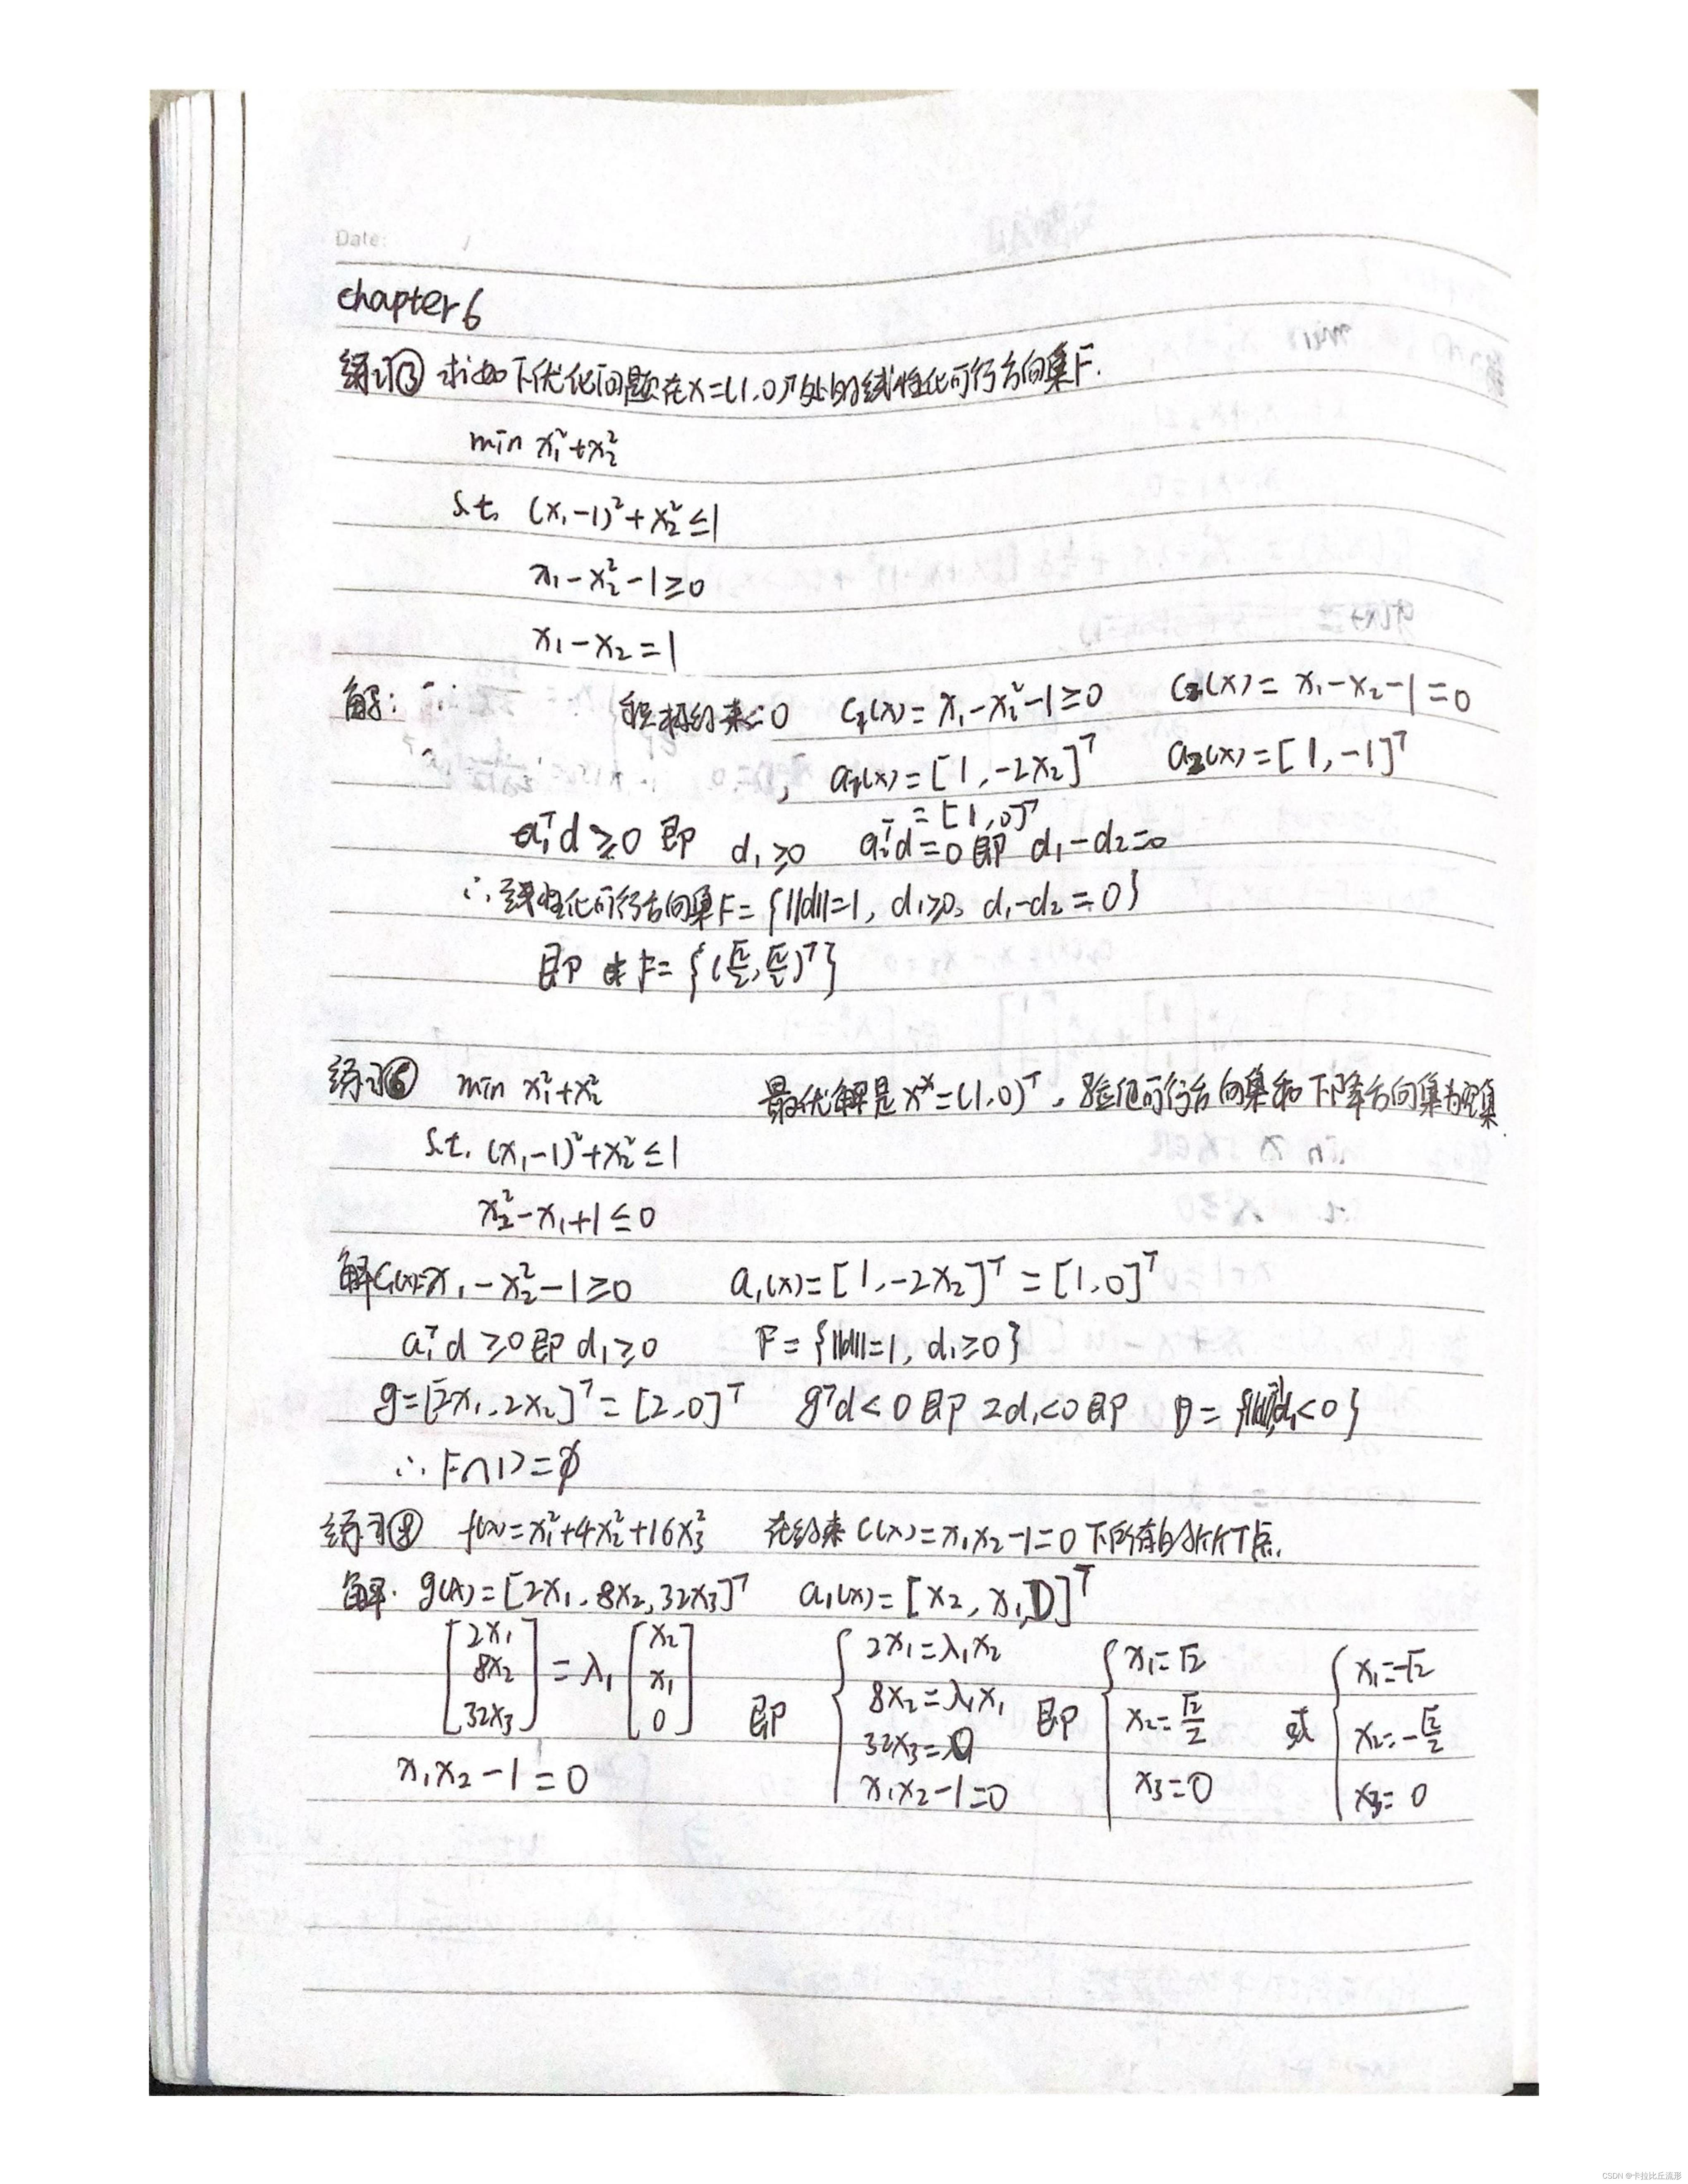 Date:
chapter 6
练习③ 求如下优化问题在x=(1,0)ᵀ处的线性化可行方向集F.
min x₁²+x₂²
s.t. (x₁-1)²+x₂²≤1
x₁-x₂²-1≥0
x₁-x₂=1
解: ∵ 积极约束: c₁(x)=x₁-x₂²-1≥0 c₂(x)=x₁-x₂-1=0
, a₁(x)=[1,-2x₂]ᵀ a₂(x)=[1,-1]ᵀ
=[1,0]ᵀ
a₁ᵀd≥0 即 d₁≥0 a₂ᵀd=0即 d₁-d₂=0
∴ 线性化可行方向集F={||d||=1, d₁≥0, d₁-d₂=0}
即 F={(√2/2,√2/2)ᵀ}
练习⑥ min x₁²+x₂² 最优解是x*=(1,0)ᵀ, 验证可行方向集和下降方向集为空集.
s.t. (x₁-1)²+x₂²≤1
x₂²-x₁+1≤0
解C₁(x)=x₁-x₂²-1≥0 a₁(x)=[1,-2x₂]ᵀ=[1,0]ᵀ
a₁ᵀd≥0即d₁≥0 F={||d||=1, d₁≥0}
g=[2x₁,2x₂]ᵀ=[2,0]ᵀ gᵀd<0即2d₁<0即 D={||d||=1,d₁<0}
∴ F∩D=∅
练习⑧ f(x)=x₁²+4x₂²+16x₃² 在约束C(x)=x₁x₂-1=0下所有的KKT点.
解. g(x)=[2x₁,8x₂,32x₃]ᵀ a₁(x)=[x₂,x₁,0]ᵀ
[2x₁ 8x₂ 32x₃]=λ₁[x₂ x₁ 0] 即 {2x₁=λ₁x₂ 8x₂=λ₁x₁ 32x₃=0 x₁x₂-1=0 即 {x₁=√2 x₂=√2/2 x₃=0 或 {x₁=-√2 x₂=-√2/2 x₃=0
x₁x₂-1=0
CSDN @卡拉比丘流形